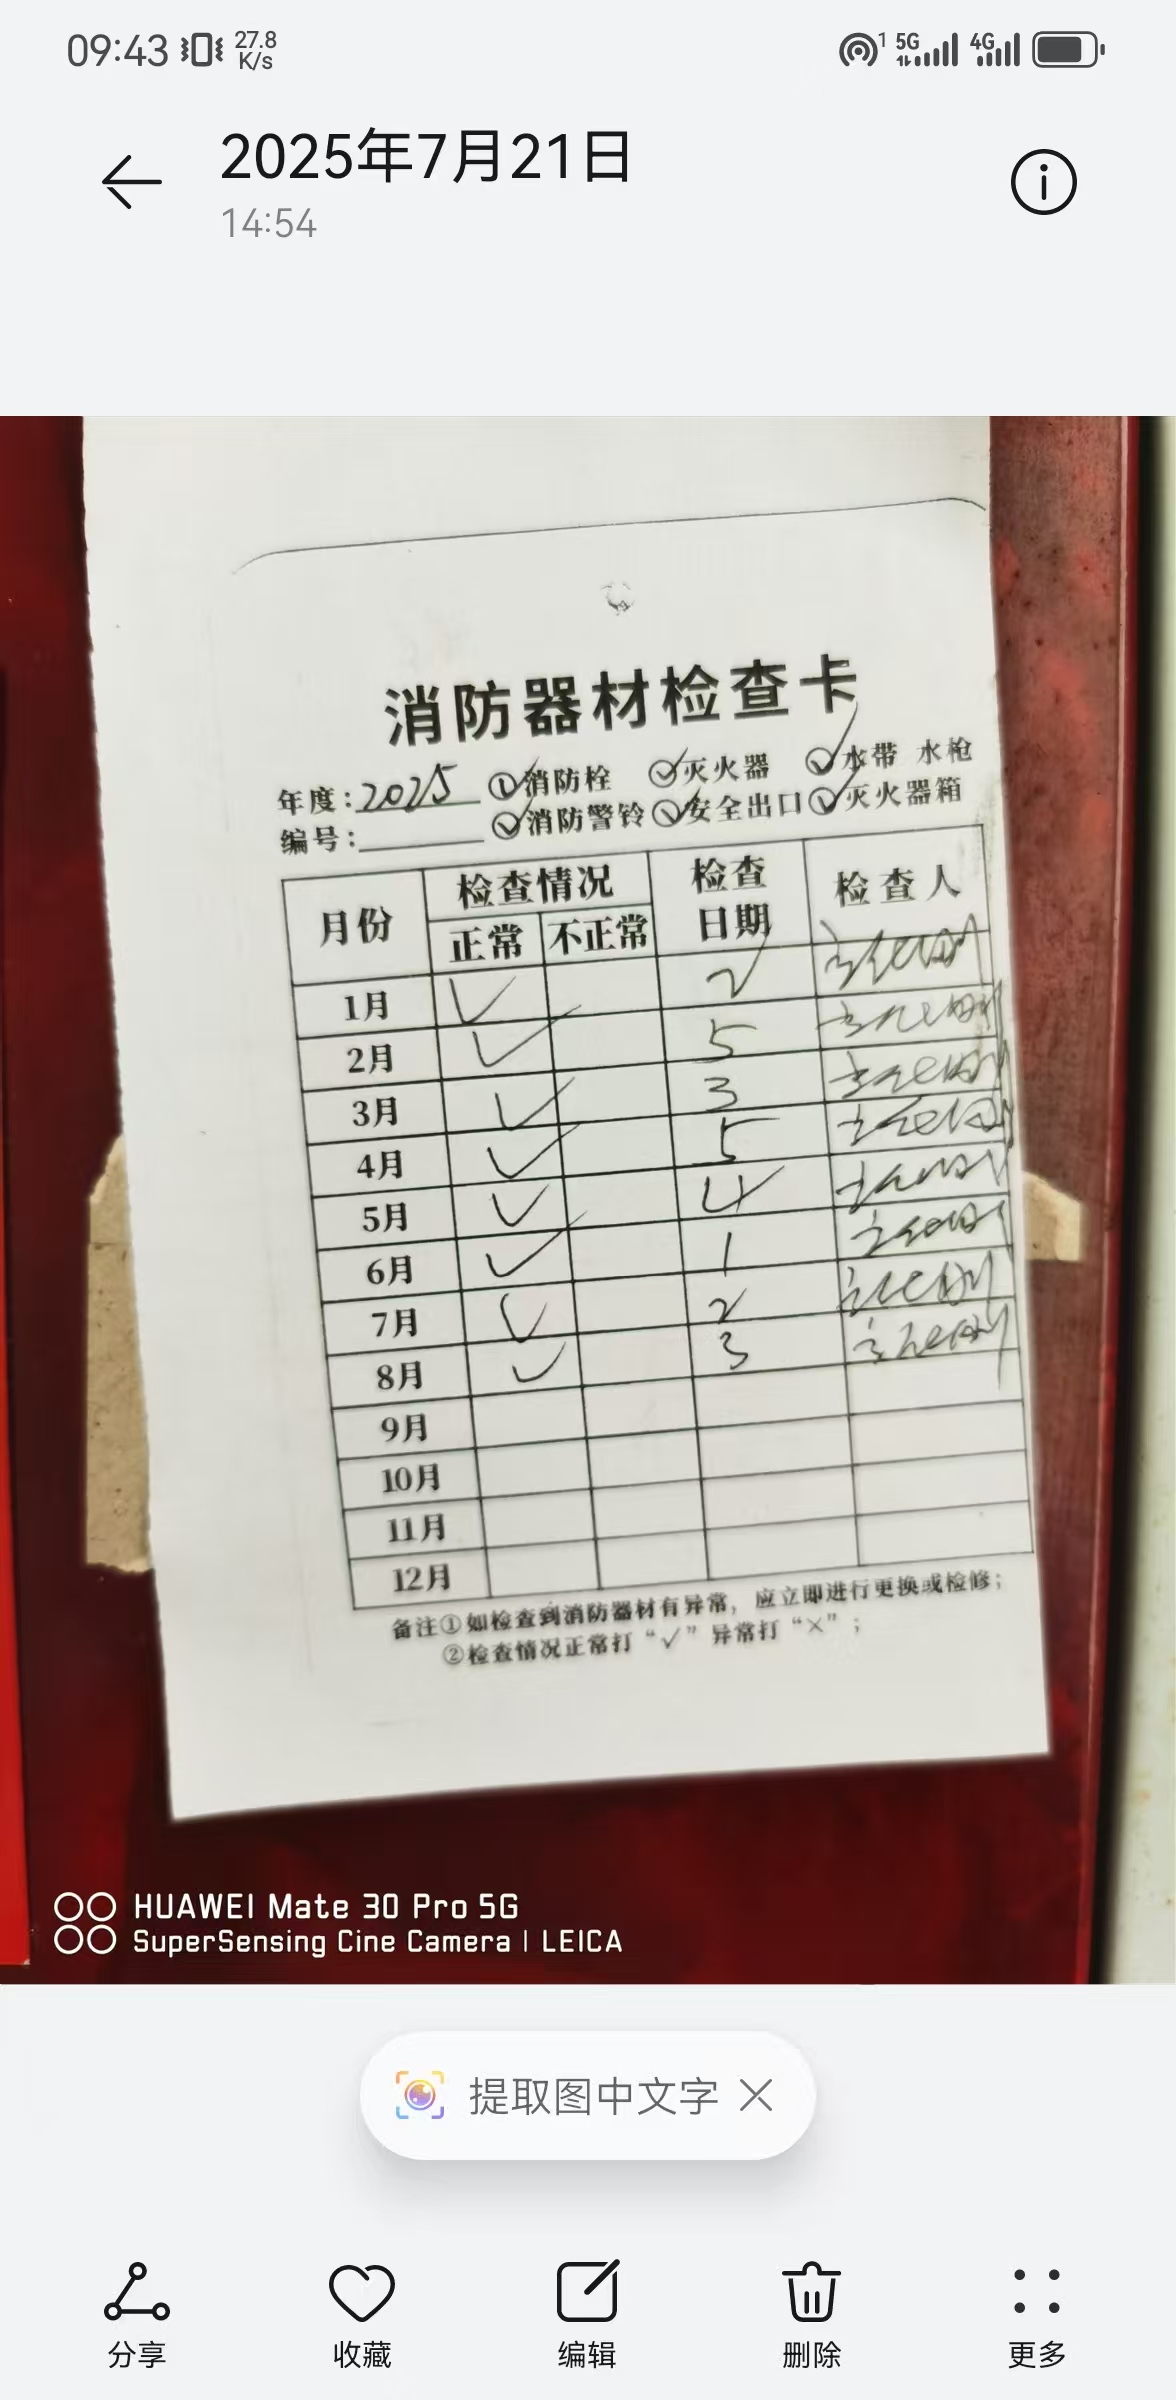 09:43 27.8 K/s 1 5G 4G
2025年7月21日
14:54
消防器材检查卡
年度:2025 ①✓消防栓 ✓灭火器 ✓水带 水枪
编号: ✓消防警铃 ✓安全出口 ✓灭火器箱
月份 检查情况 检查日期 检查人
正常 不正常
1月 ✓ 2
2月 ✓ 5
3月 ✓ 3
4月 ✓ 5
5月 ✓ 4
6月 ✓ 1
7月 ✓ 2
8月 ✓ 3
9月
10月
11月
12月
备注①如检查到消防器材有异常，应立即进行更换或检修；
②检查情况正常打“✓”异常打“×”；
HUAWEI Mate 30 Pro 5G
SuperSensing Cine Camera | LEICA
提取图中文字
分享 收藏 编辑 删除 更多